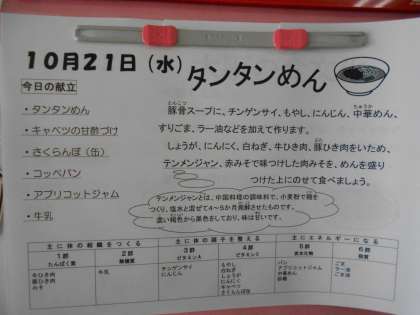 10月21日（水）
タンタンめん
今日の献立
・タンタンめん
・キャベツの甘酢づけ
・さくらんぼ（缶）
・コッペパン
・アプリコットジャム
・牛乳
とんこつ
ちゅうか
豚骨スープに、チンゲンサイ、もやし、にんじん、中華めん、
すりごま、ラー油などを加えて作ります。
しょうが、にんにく、白ねぎ、牛ひき肉、豚ひき肉をいため、
テンメンジャン、赤みそで味つけした肉みそを、めんを盛り
つけた上にのせて食べましょう。
テンメンジャンとは、中国料理の調味料で、小麦粉で麹を
つくり、塩水と混ぜて4～5か月発酵させたものです。
濃い褐色から黒色をしており、味は甘いです。
主に体の組織をつくる
主に体の調子を整える
主にエネルギーになる
1群
2群
3群
4群
5群
6群
たんぱく質
無機質
ビタミンA
ビタミンC
炭水化物
脂質
牛ひき肉
豚ひき肉
みそ
牛乳
チンゲンサイ
にんじん
もやし
白ねぎ
しょうが
にんにく
キャベツ
さくらんぼ缶
パン
アプリコットジャム
中華めん
砂糖
ごま
ラー油
ごま油